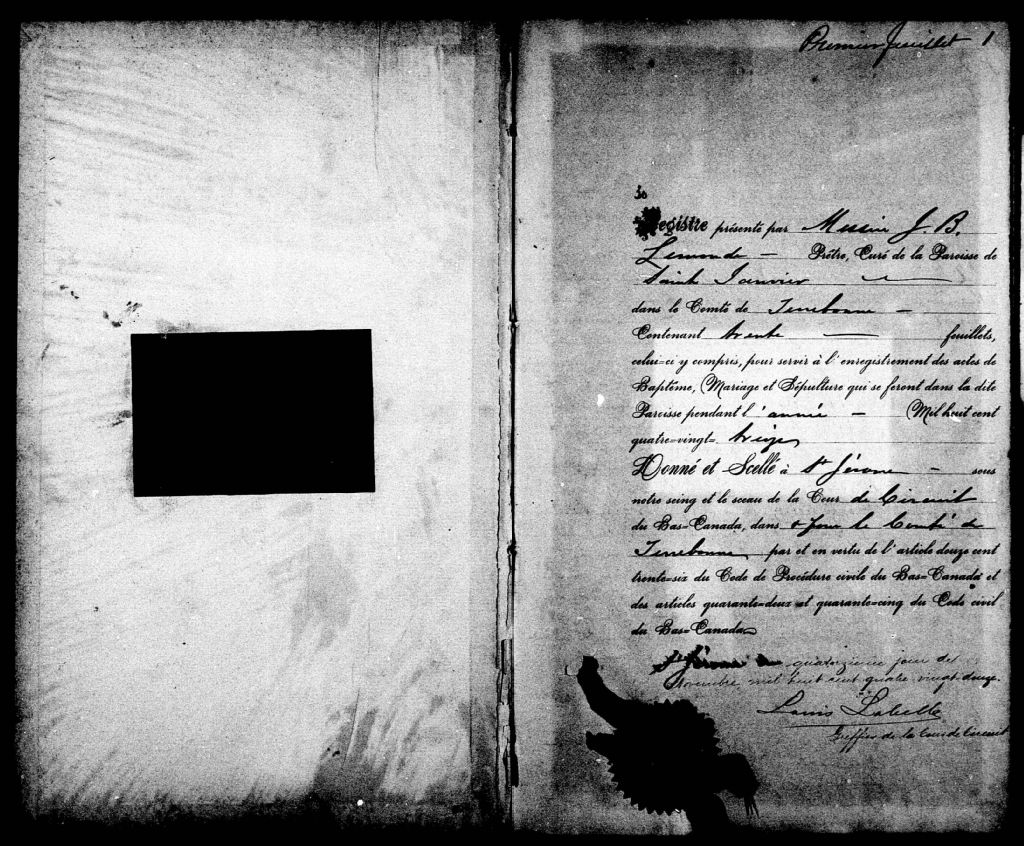 Premier feuillet 1
30
Registre présenté par Messire J. B.
Lemonde — Prêtre, Curé de la Paroisse de
Saint Janvier —
dans le Comté de Terrebonne —
Contenant trente — feuillets,
celui-ci y compris, pour servir à l'enregistrement des actes de
Baptême, Mariage et Sépulture qui se feront dans la dite
Paroisse pendant l'année — Mil huit cent
quatre-vingt-treize
Donné et Scellé à St Jérome — sous
notre seing et le sceau de la Cour de Circuit
du Bas-Canada, dans & pour le Comté de
Terrebonne, par et en vertu de l'article douze cent
trente-six du Code de Procédure civile du Bas-Canada et
des articles quarante-deux et quarante-cinq du Code civil
du Bas-Canada
St Jérome quatorzieme jour de
Novembre, mil huit cent quatre vingt-douze.
Louis Labelle
Greffier de la Cour de Circuit